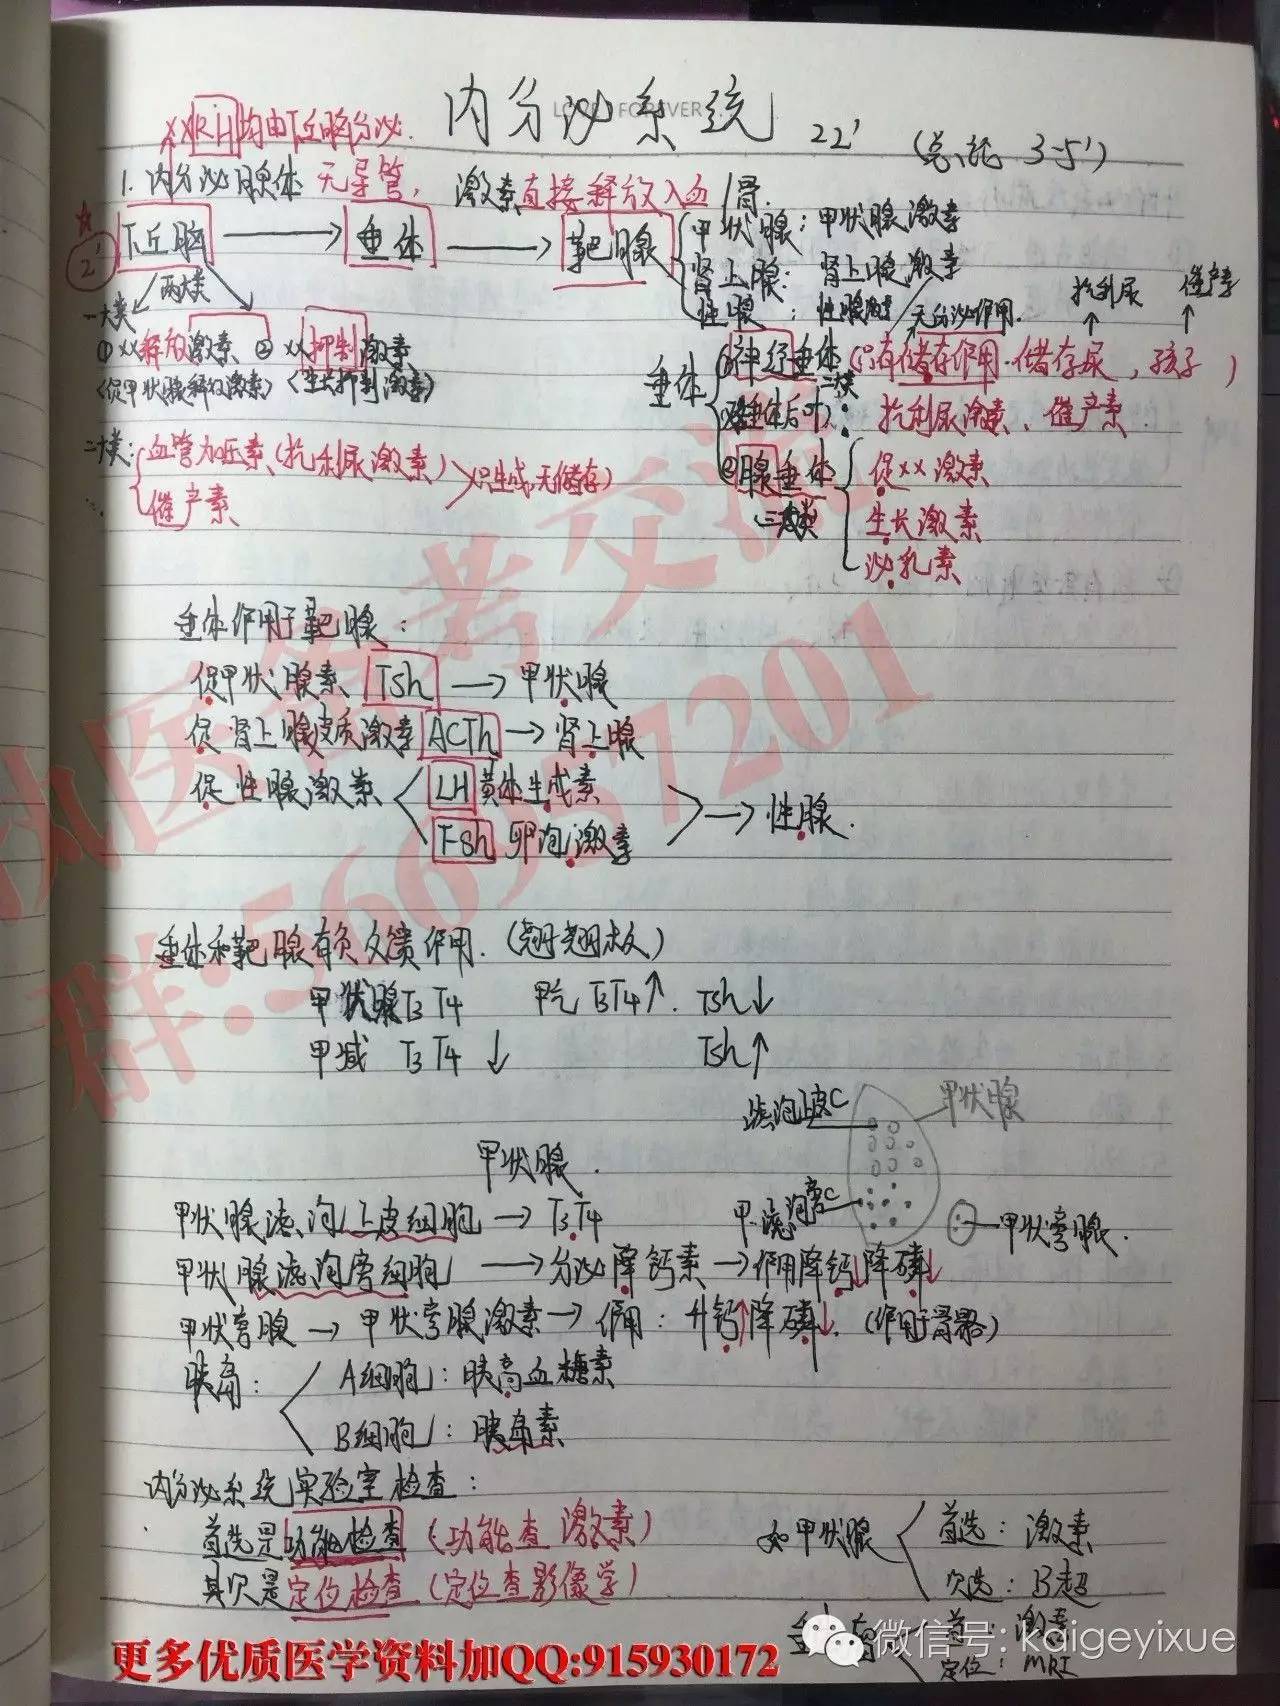 LO FOREVER
内分泌系统 22' (总论 3-5')
××RH均由下丘脑分泌.
1. 内分泌腺体 无导管, 激素直接释放入血/骨.
☆ 2' 下丘脑 → 垂体 → 靶腺
甲状腺: 甲状腺激素
肾上腺: 肾上腺激素
性腺: 性腺激素
两大类
一大类
① ××释放激素、② ××抑制激素
(促甲状腺释放激素) (生长抑制激素)
二大类: 血管加压素(抗利尿激素)
催产素
只生成,无储存)
抗利尿 催产素
无分泌作用.
垂体 ① 神经垂体 (只有储存作用. 储存尿, 孩子)
二大类
垂体后叶): 抗利尿激素、催产素
② 腺垂体
三大类
促××激素
生长激素
泌乳素
垂体作用于靶腺:
促甲状腺素 Tsh → 甲状腺
促肾上腺皮质激素 ACTh → 肾上腺
促性腺激素 LH 黄体生成素
Fsh 卵泡激素
→ 性腺.
垂体和靶腺有负反馈作用. (翘翘板)
甲状腺 T3 T4 甲亢 T3T4↑. Tsh↓
甲减 T3 T4 ↓ Tsh↑
滤泡上皮C
甲状腺
甲.滤泡旁C
甲状旁腺.
甲状腺.
甲状腺滤泡上皮细胞 → T3.T4
甲状腺滤泡旁细胞 → 分泌降钙素 → 作用降钙↓降磷↓
甲状旁腺 → 甲状旁腺激素 → 作用: 升钙↑降磷↓. (作用于骨骼)
胰岛: A细胞: 胰高血糖素
B细胞: 胰岛素
内分泌系统实验室检查:
首选是功能检查 (功能查激素)
其次是定位检查 (定位查影像学)
如甲状腺 首选: 激素
次选: B超
垂体 首: 激素
定位: MRI
执医备考交流
群:566957201
更多优质医学资料加QQ:915930172
微信号: kaigeyixue